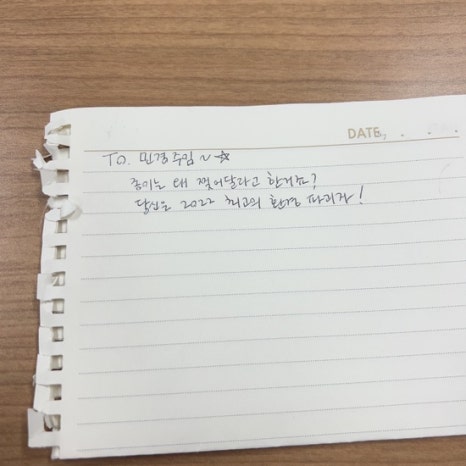 DATE, . .
TO. 민경주임~☆
종이는 왜 찢어달라고 한거죠?
당신은 2022 최고의 환경 파괴자!